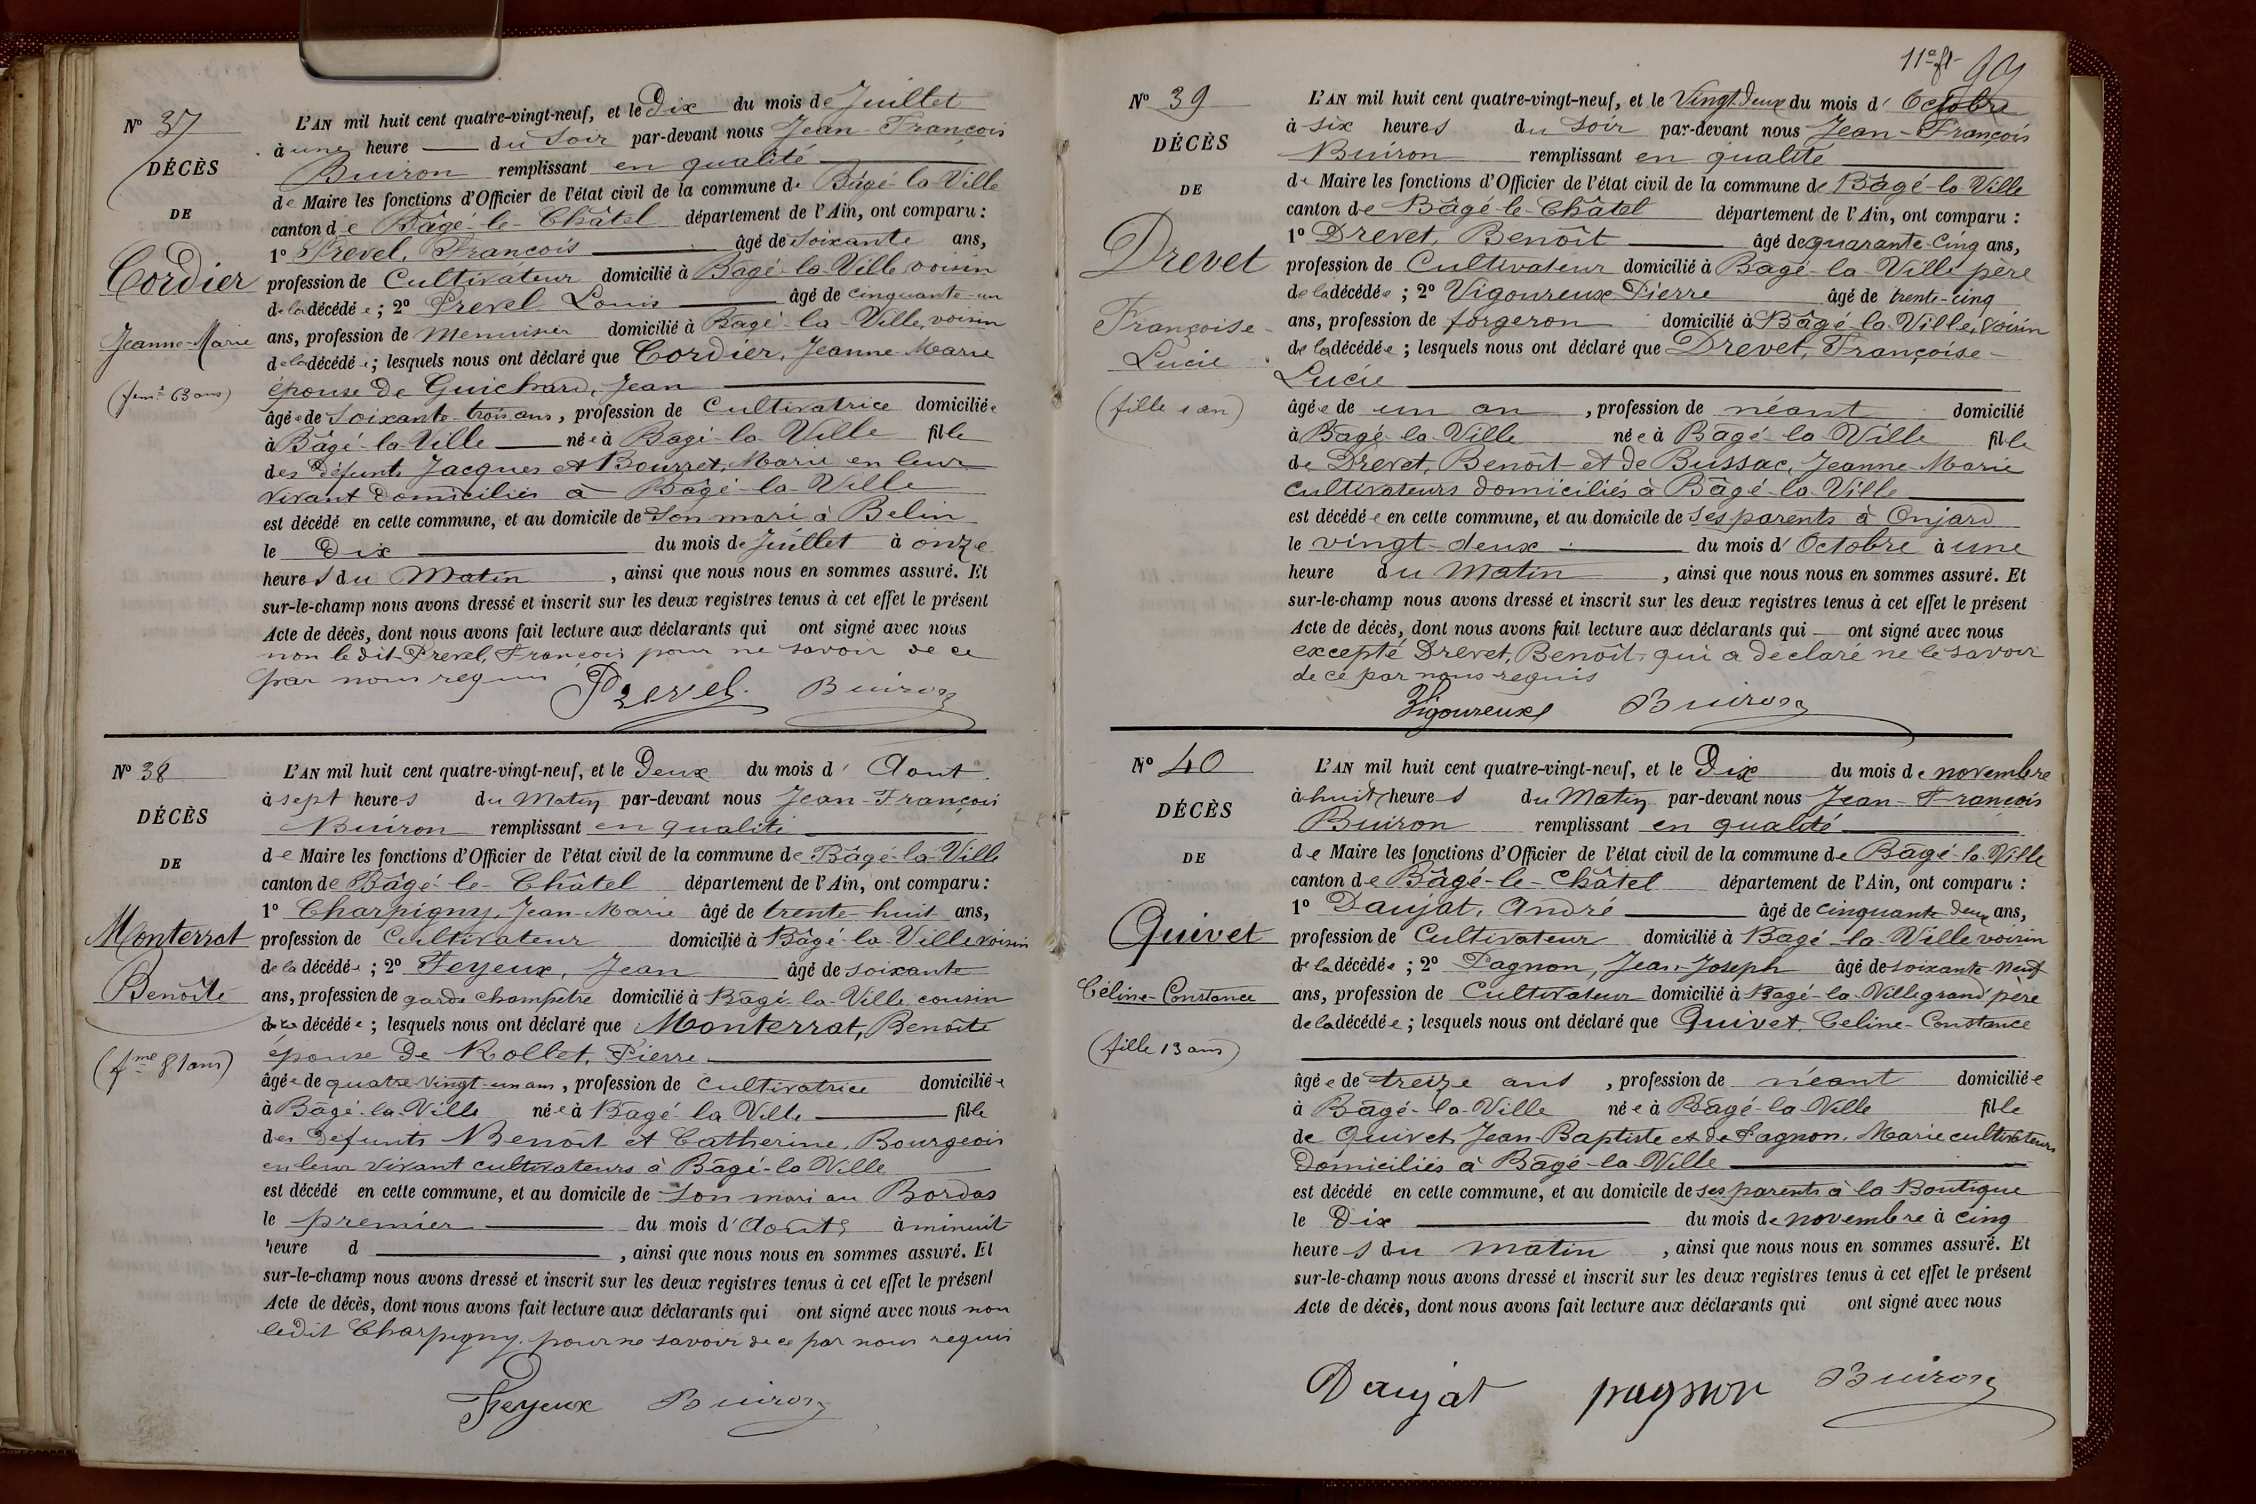 N° 37
DÉCÈS
DE
Cordier
Jeanne-Marie
(femᵉ 63 ans)
L'AN mil huit cent quatre-vingt-neuf, et le Dix du mois de Juillet
à une heure du Soir par-devant nous Jean-François
Buiron remplissant en qualité
de Maire les fonctions d'Officier de l'état civil de la commune de Bâgé-la-Ville
canton de Bâgé-le-Châtel département de l'Ain, ont comparu :
1° Prevel, François âgé de soixante ans,
profession de Cultivateur domicilié à Bâgé-la-Ville voisin
de la décédée ; 2° Prevel Louis âgé de cinquante-un
ans, profession de Menuisier domicilié à Bâgé-la-Ville, voisin
de la décédée ; lesquels nous ont déclaré que Cordier, Jeanne-Marie
épouse de Guichard, Jean
âgée de soixante-trois ans, profession de Cultivatrice domiciliée
à Bâgé-la-Ville née à Bâgé-la-Ville fille
des défunts Jacques et Bourret, Marie en leur
vivant domiciliés à Bâgé-la-Ville
est décédé en cette commune, et au domicile de son mari à Belin
le Dix du mois de Juillet à onze
heures du Matin, ainsi que nous nous en sommes assuré. Et
sur-le-champ nous avons dressé et inscrit sur les deux registres tenus à cet effet le présent
Acte de décès, dont nous avons fait lecture aux déclarants qui ont signé avec nous
non ledit Prevel, François pour ne savoir de ce
par nous requis
Prevel. Buiron
N° 38
DÉCÈS
DE
Monterrat
Benoîte
(fᵐᵉ 81 ans)
L'AN mil huit cent quatre-vingt-neuf, et le Deux du mois d'Aout
à sept heures du Matin par-devant nous Jean-François
Buiron remplissant en qualité
de Maire les fonctions d'Officier de l'état civil de la commune de Bâgé-la-Ville
canton de Bâgé-le-Châtel département de l'Ain, ont comparu :
1° Charpigny, Jean-Marie âgé de trente-huit ans,
profession de Cultivateur domicilié à Bâgé-la-Ville voisin
de la décédée ; 2° Feyeux, Jean âgé de soixante
ans, profession de garde champêtre domicilié à Bâgé-la-Ville cousin
de la décédée ; lesquels nous ont déclaré que Monterrat, Benoîte
épouse de Rollet, Pierre
âgée de quatre-vingt-un ans, profession de cultivatrice domiciliée
à Bâgé-la-Ville née à Bâgé-la-Ville fille
des défunts Benoît et Catherine, Bourgeois
en leur vivant cultivateurs à Bâgé-la-Ville
est décédé en cette commune, et au domicile de son mari au Bordas
le premier du mois d'Août à minuit
heure d , ainsi que nous nous en sommes assuré. Et
sur-le-champ nous avons dressé et inscrit sur les deux registres tenus à cet effet le présent
Acte de décès, dont nous avons fait lecture aux déclarants qui ont signé avec nous non
ledit Charpigny, pour ne savoir de ce par nous requis
Feyeux Buiron
11ᵉ ft 99
N° 39
DÉCÈS
DE
Drevet
Françoise-
Lucie
(fille 1 an)
L'AN mil huit cent quatre-vingt-neuf, et le Vingt Deux du mois d'Octobre
à six heures du Soir par-devant nous Jean-François
Buiron remplissant en qualité
de Maire les fonctions d'Officier de l'état civil de la commune de Bâgé-la-Ville
canton de Bâgé-le-Châtel département de l'Ain, ont comparu :
1° Drevet, Benoît âgé de quarante-cinq ans,
profession de Cultivateur domicilié à Bâgé-la-Ville père
de la décédée ; 2° Vigoureux Pierre âgé de trente-cinq
ans, profession de forgeron domicilié à Bâgé-la-Ville, voisin
de la décédée ; lesquels nous ont déclaré que Drevet, Françoise-
Lucie
âgée de un an, profession de néant domicilié
à Bâgé-la-Ville née à Bâgé-la-Ville fille
de Drevet, Benoît et de Bussac, Jeanne-Marie
cultivateurs domiciliés à Bâgé-la-Ville
est décédée en cette commune, et au domicile de ses parents à Onjard
le vingt-deux du mois d'Octobre à une
heure du Matin, ainsi que nous nous en sommes assuré. Et
sur-le-champ nous avons dressé et inscrit sur les deux registres tenus à cet effet le présent
Acte de décès, dont nous avons fait lecture aux déclarants qui ont signé avec nous
excepté Drevet, Benoît, qui a déclaré ne le savoir
de ce par nous requis
Vigoureux Buiron
N° 40
DÉCÈS
DE
Quivet
Céline-Constance
(fille 13 ans)
L'AN mil huit cent quatre-vingt-neuf, et le Dix du mois de novembre
à huit heures du Matin par-devant nous Jean-François
Buiron remplissant en qualité
de Maire les fonctions d'Officier de l'état civil de la commune de Bâgé-la-Ville
canton de Bâgé-le-Châtel département de l'Ain, ont comparu :
1° Daujat, André âgé de cinquante deux ans,
profession de Cultivateur domicilié à Bâgé-la-Ville voisin
de la décédée ; 2° Pagnon, Jean-Joseph âgé de soixante-neuf
ans, profession de Cultivateur domicilié à Bagé-la-Ville grand père
de la décédée ; lesquels nous ont déclaré que Quivet, Celine-Constance
âgée de treize ans, profession de néant domiciliée
à Bâgé-la-Ville née à Bâgé-la-Ville fille
de Quivet, Jean-Baptiste et de Pagnon, Marie cultivateurs
domiciliés à Bâgé-la-Ville
est décédé en cette commune, et au domicile de ses parents à la Boutique
le Dix du mois de novembre à cinq
heures du matin, ainsi que nous nous en sommes assuré. Et
sur-le-champ nous avons dressé et inscrit sur les deux registres tenus à cet effet le présent
Acte de décès, dont nous avons fait lecture aux déclarants qui ont signé avec nous
Daujat pagnon Buiron